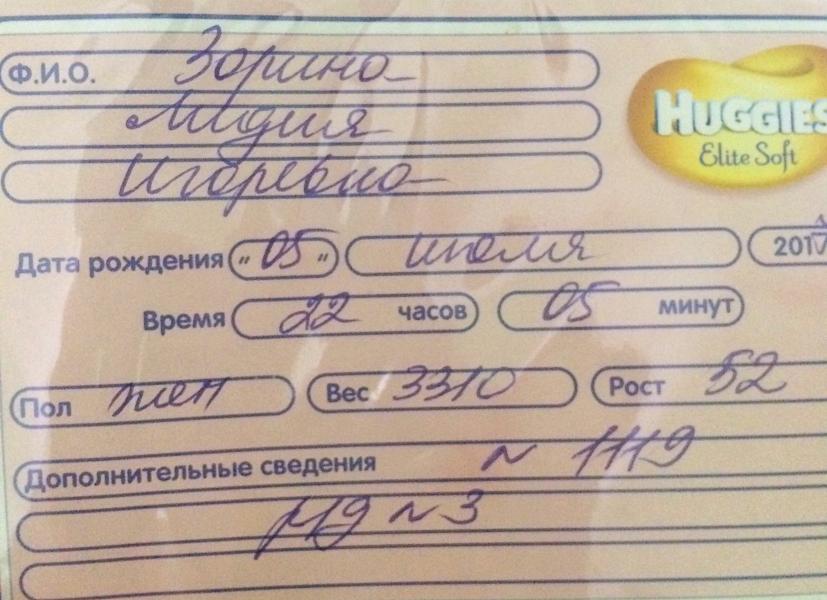 Ф.И.О. Зорина
HUGGIES
Лидия
Elite Soft
Игоревна
Дата рождения "05" июля 201
Время 22 часов 05 минут
Пол жен Вес 3310 Рост 52
Дополнительные сведения N 1119
N3